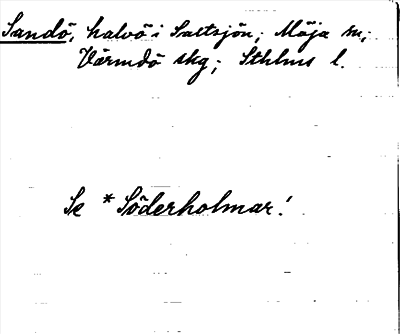 Sandö, halvö i Saltsjön; Möja sn;
Värmdö skg; Sthlms l.
Se *Söderholmar!